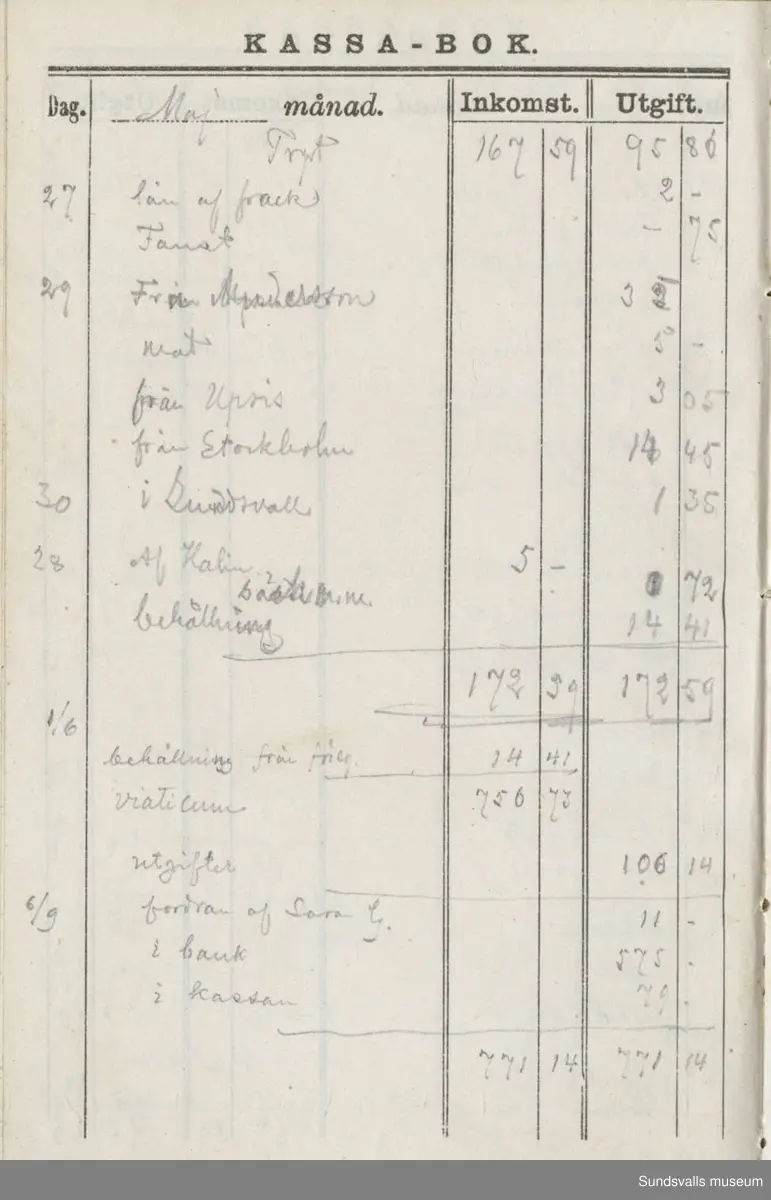 KASSA-BOK.
Dag. Maj månad. Inkomst. Utgift.
Trpt 167 59 95 86
27 lån af frack 2 -
Faust - 75
29 Från 3
mat 5 -
från Upsis 3 05
från Stockholm 14 45
30 i Sundsvall 1 35
28 Af Halin 5 -
m.m. 72
behållning 14 41
172 59 172 59
1/6
behållning från föreg. 14 41
viaticum 756 73
utgifter 106 14
6/9 fordran af Sara G. 11 -
i bank 575 -
i kassan 79 -
771 14 771 14
Sundsvalls museum